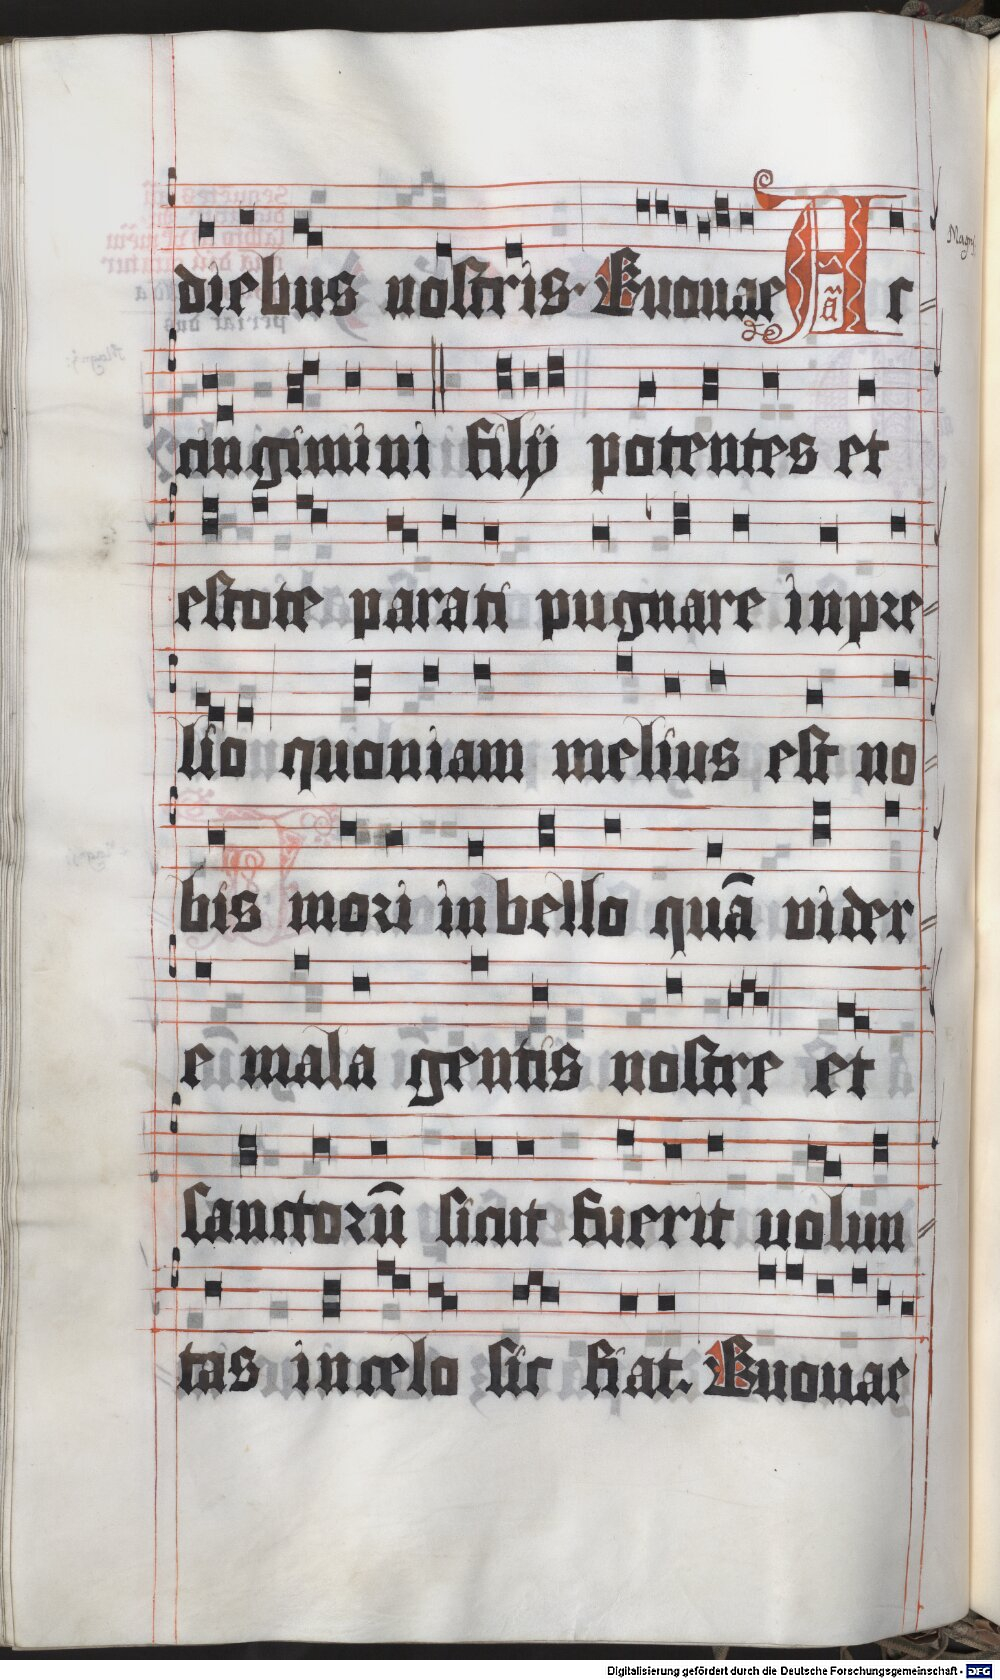 diebus nostris. Euouae Ac
Magnificat
cingimini filij potentes et
estote parati pugnare inpre
lio quoniam melius est no
bis mori in bello quā vider
e mala gentis nostre et
sanctorū sicut fuerit uolun
tas in celo sic fiat. Euouae
Digitalisierung gefördert durch die Deutsche Forschungsgemeinschaft - DFG